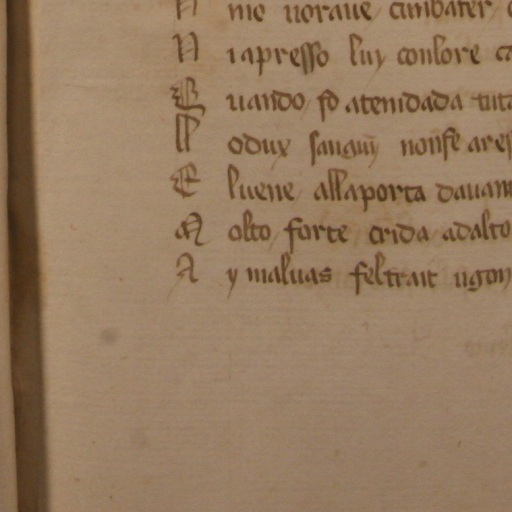 N me uoraue cunbater
N iapresso luy conlore
E uando fo atendada tut
L odux sanguin nonfe ares
E luene allaporta dauan
M olto forte crida adalto
A y maluas feltrait ugon